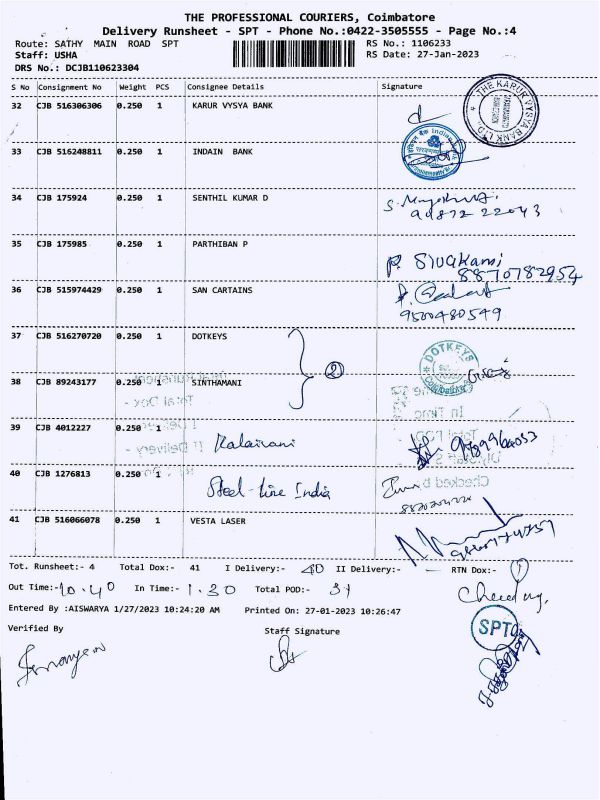 THE PROFESSIONAL COURIERS, Coimbatore
Delivery Runsheet - SPT - Phone No.:0422-3505555 - Page No.:4
Route: SATHY MAIN ROAD SPT RS No.: 1106233
Staff: USHA RS Date: 27-Jan-2023
DRS No.: DCJB110623304
S No Consignment No Weight PCS Consignee Details Signature
32 CJB 516306306 0.250 1 KARUR VYSYA BANK
THE KARUR VYSYA BANK LTD.
33 CJB 516248811 0.250 1 INDAIN BANK
34 CJB 175924 0.250 1 SENTHIL KUMAR D
35 CJB 175985 0.250 1 PARTHIBAN P P. Sivakami
8870782954
36 CJB 515974429 0.250 1 SAN CARTAINS
9500480549
37 CJB 516270720 0.250 1 DOTKEYS DOTKEYS Coimbatore
2
38 CJB 89243177 0.250 1 SINTHAMANI
39 CJB 4012227 0.250 1 Kalaivani
40 CJB 1276813 0.250 1 Steel-Line India
41 CJB 516066078 0.250 1 VESTA LASER
Tot. Runsheet:- 4 Total Dox:- 41 I Delivery:- 40 II Delivery:- — RTN Dox:- 1
Out Time:- 10.40 In Time:- 1.30 Total POD:- 31
Entered By :AISWARYA 1/27/2023 10:24:20 AM Printed On: 27-01-2023 10:26:47
Verified By Staff Signature
SPT